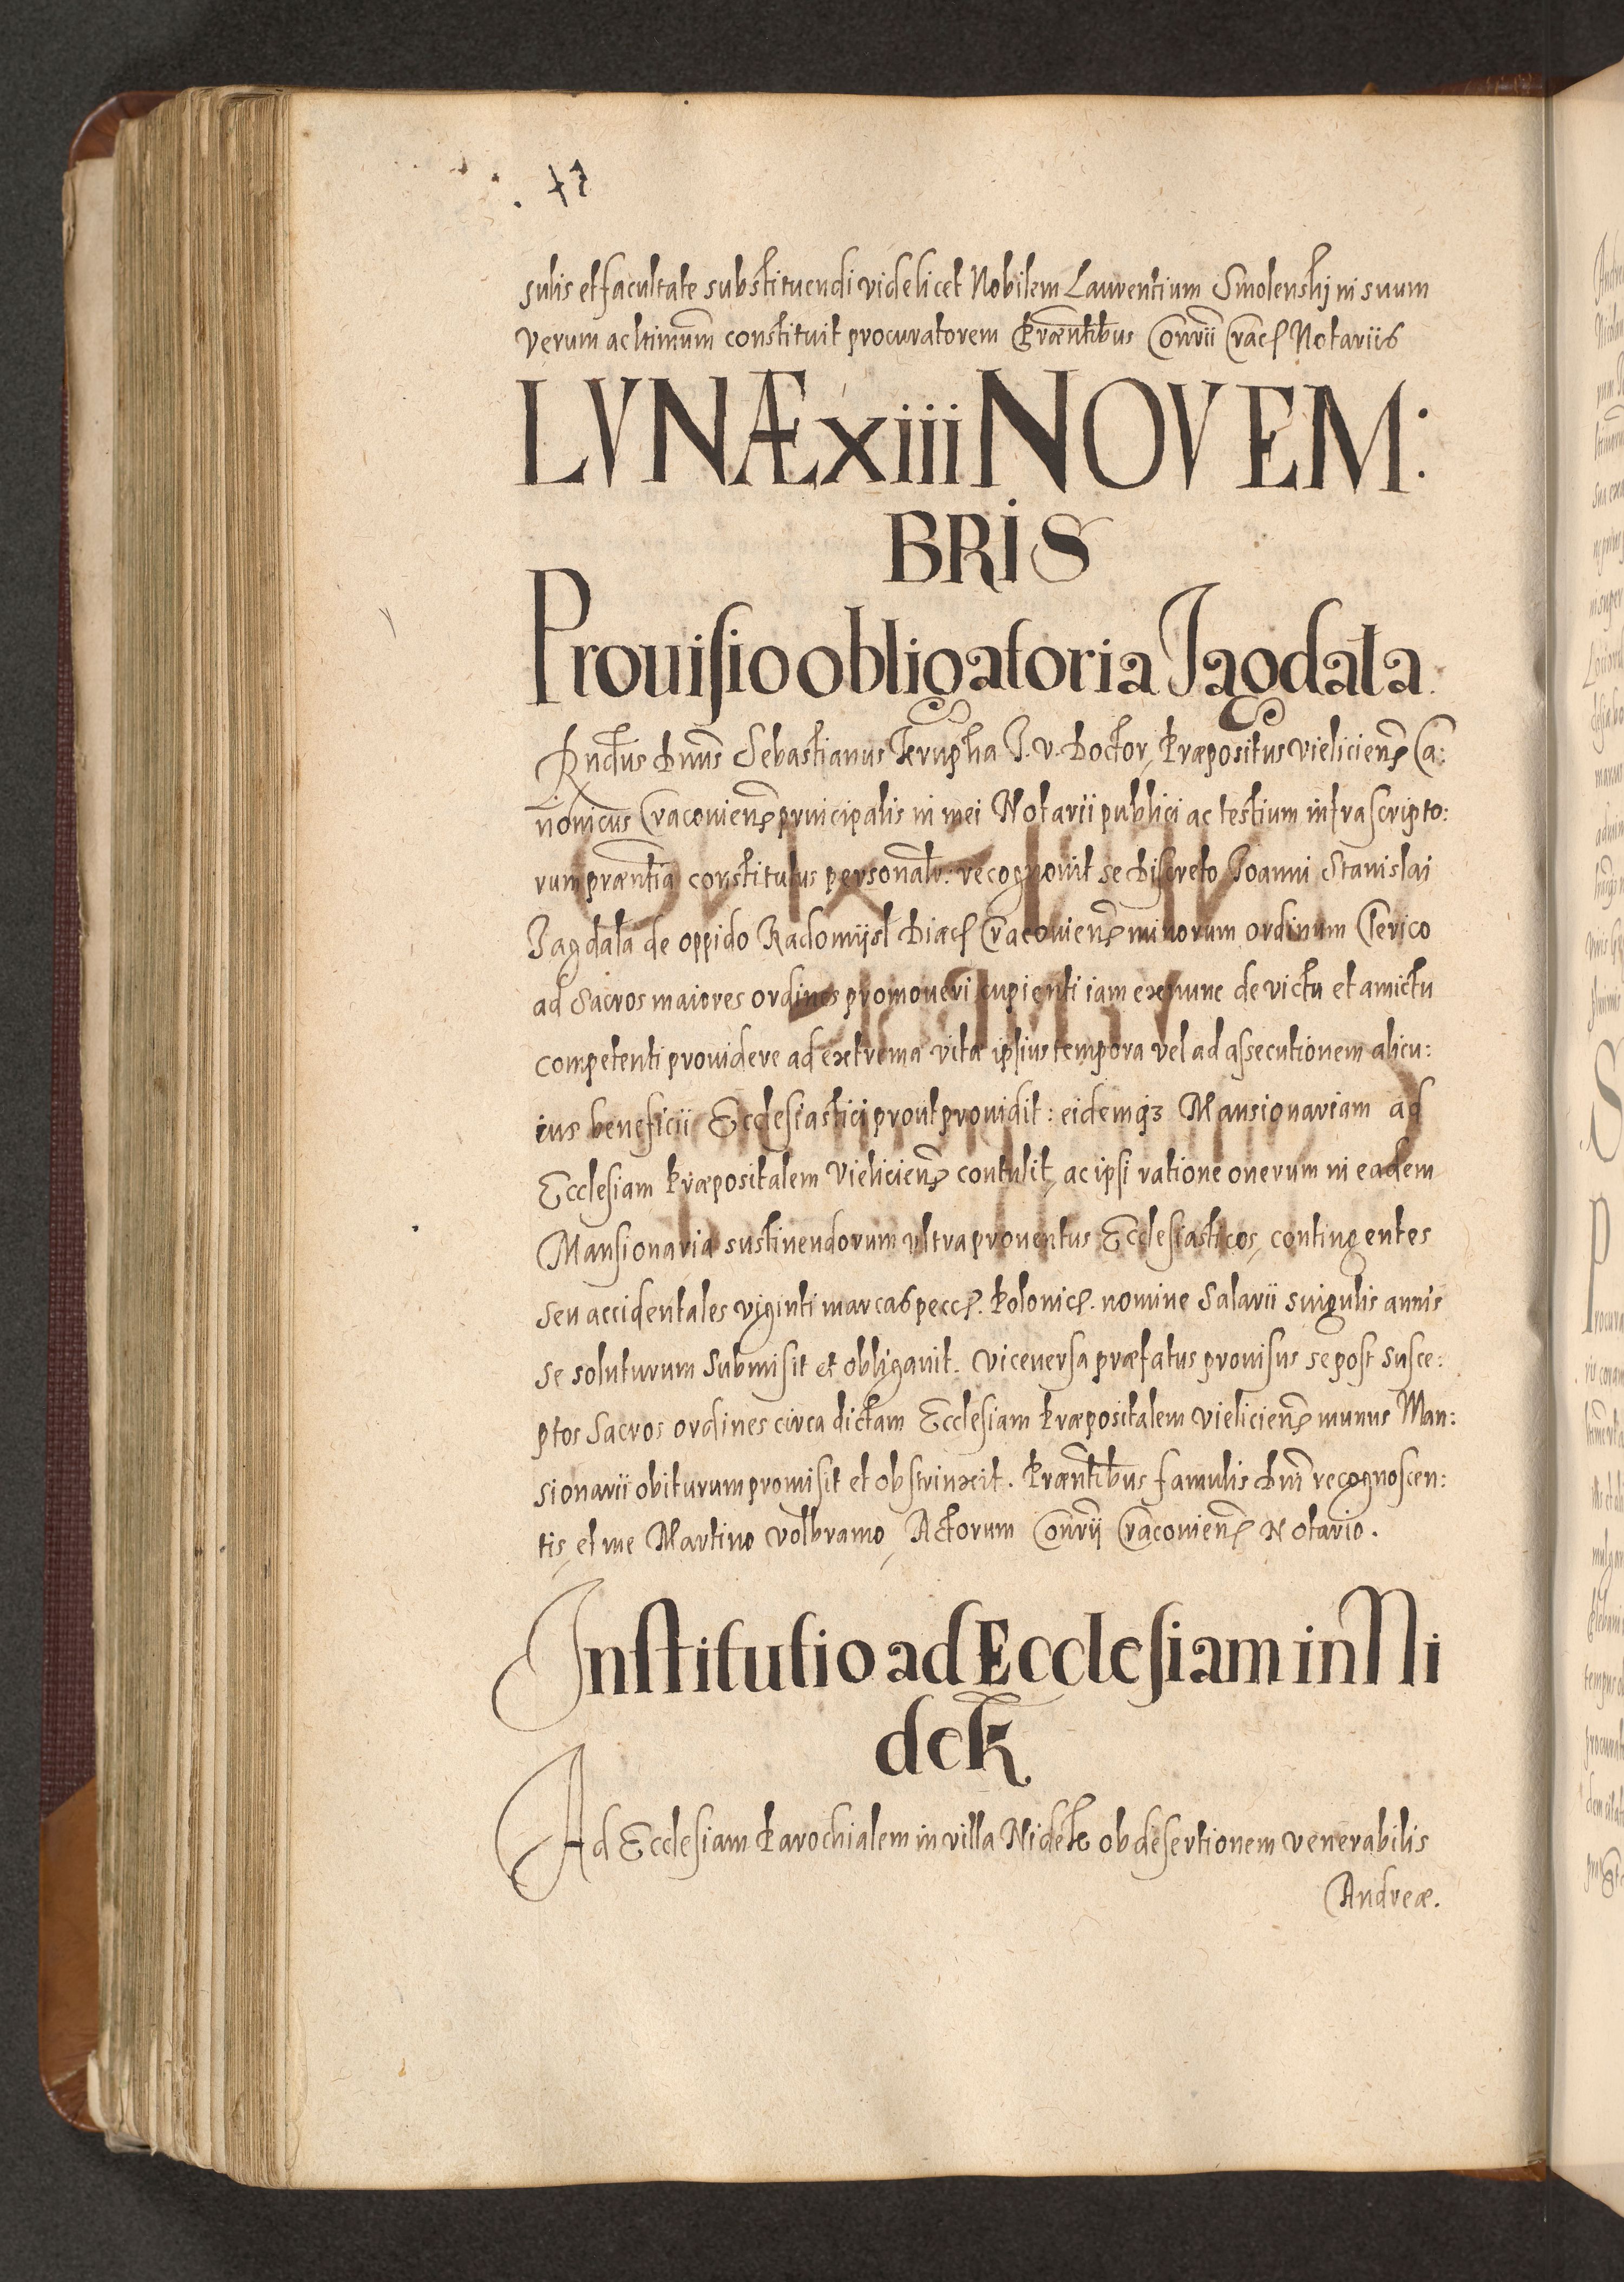 sulis et facultate substituendi videlicet Nobilem Laurentium Smolenskj in suum
verum ac ltimum̄ constituit procuratorem Præn̄tibus Con̄rii Crac̄ Notariis
LVNÆ xiii NOVEM:
BRIS
Prouisio obligatoria Jagodała
Rn̄dus Dn̄us Sebastianus Krupka J. V. Doctor, Præpositus vieliciens̄ Ca:
nonicus Cracouiens̄ principalis in mei Notarii publici ac testium infrascripto:
rum præn̄tia constitutus personalr̄: recognouit se Discreto Joanni Stanislai
Jagdała de oppido Radomijsl Diæc̄ Cracouiens̄ minorum ordinum Clerico
ad Sacros maiores ordines promoueri cupienti iam ex nunc de victu et amictu
competenti prouidere ad extrema vitæ ipsius tempora vel ad assecutionem alicu:
ius beneficii Ecclesiastici prout prouidit: eidemqz Mansionariam ad
Ecclesiam Præpositalem Vieliciens̄ contulit, ac ipsi ratione onerum in eadem
Mansionaria sustinendorum vltra prouentus Ecclesiasticos, contingentes
seu accidentales viginti marcas pecc̄. Polonic̄. nomine Salarii singulis annis
se soluturum Submisit et obligauit. Viceuersa præfatus prouisus se post susce:
ptos Sacros ordines circa dictam Ecclesiam Præpositalem vieliciens̄ munus Man:
sionarii obiturum promisit et obstrinxit. Præn̄tibus famulis Dn̄i recognoscen:
tis, et me Martino Volbramo, Actorum Con̄rij Cracouiens̄ Notario.
Institutio ad Ecclesiam in Ni
dek
Ad Ecclesiam Parochialem in villa Nidek ob desertionem venerabilis
Andreæ.